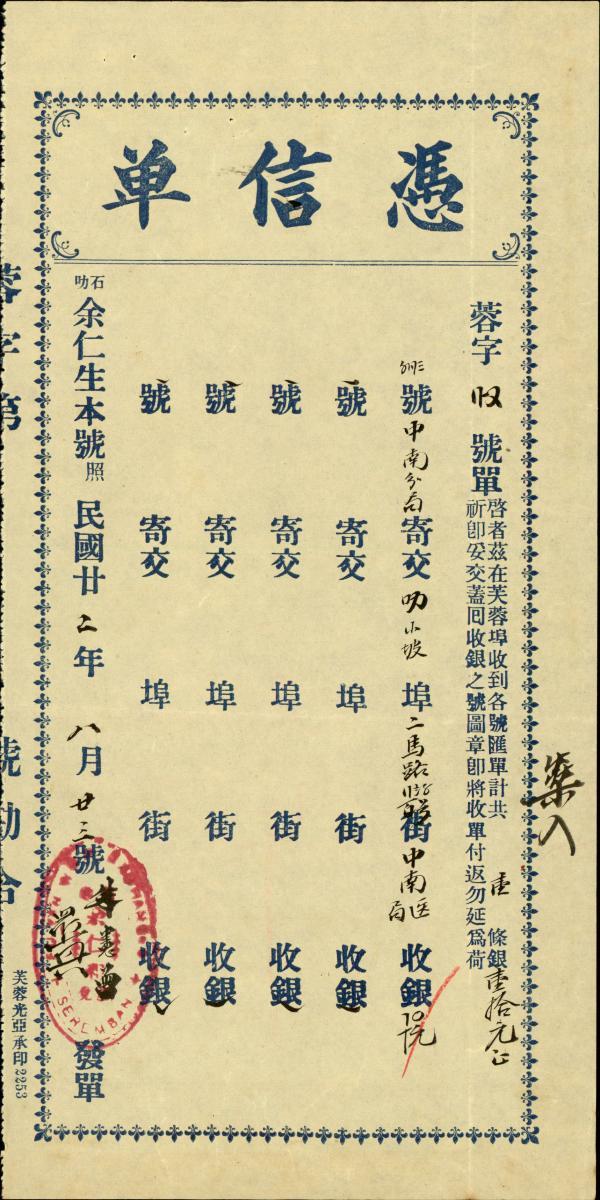 憑信单
蓉字收號單
啓者茲在芙蓉埠收到各號匯單計共壹條銀壹拾元正
祈即妥交蓋囘收銀之號圖章卽將收單付返勿延爲荷
號中南分局寄交叻小坡埠二馬路街中南匯局收銀10元
號寄交埠街收銀
號寄交埠街收銀
號寄交埠街收銀
號寄交埠街收銀
石叻余仁生本號照民國廿二年八月廿三號發單
SEREMBAN
芙蓉光亞承印 2253
蓉字第號勘合
入